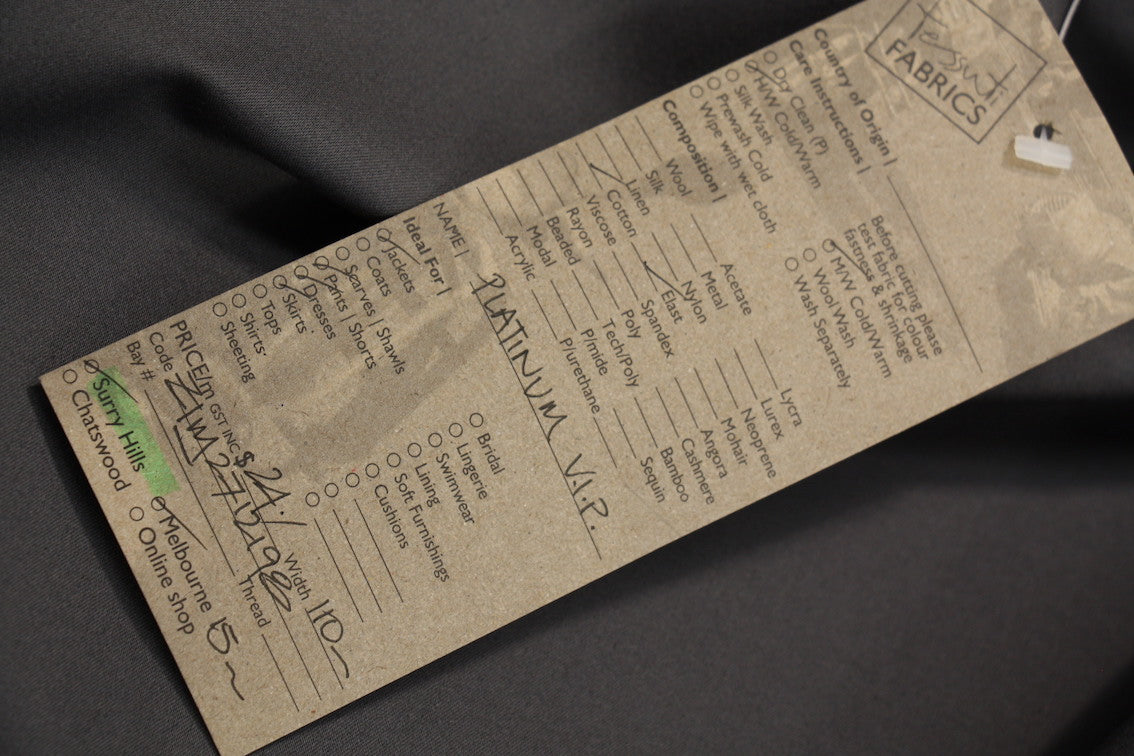 Tessuti
FABRICS
Country of Origin |
Care Instructions |
Dry Clean (P)
H/W Cold/Warm
Silk Wash
Prewash Cold
Wipe with wet cloth
Before cutting please
test fabric for colour
fastness & shrinkage
M/W Cold/Warm
Wool Wash
Wash Separately
Composition |
Wool
Silk
Linen
Cotton
Viscose
Rayon
Beaded
Modal
Acrylic
Acetate
Metal
Nylon
Elast
Spandex
Poly
Tech/Poly
P/mide
P/urethane
Lycra
Lurex
Neoprene
Mohair
Angora
Cashmere
Bamboo
Sequin
NAME | PLATINUM V.I.P.
Ideal For |
Jackets
Coats
Scarves | Shawls
Pants | Shorts
Dresses
Skirts
Tops
Shirts
Sheeting
Bridal
Lingerie
Swimwear
Lining
Soft Furnishings
Cushions
PRICE/m GST INC $24./ Width 110
Code
Bay # Thread
Surry Hills
Chatswood
Melbourne 15m
Online shop